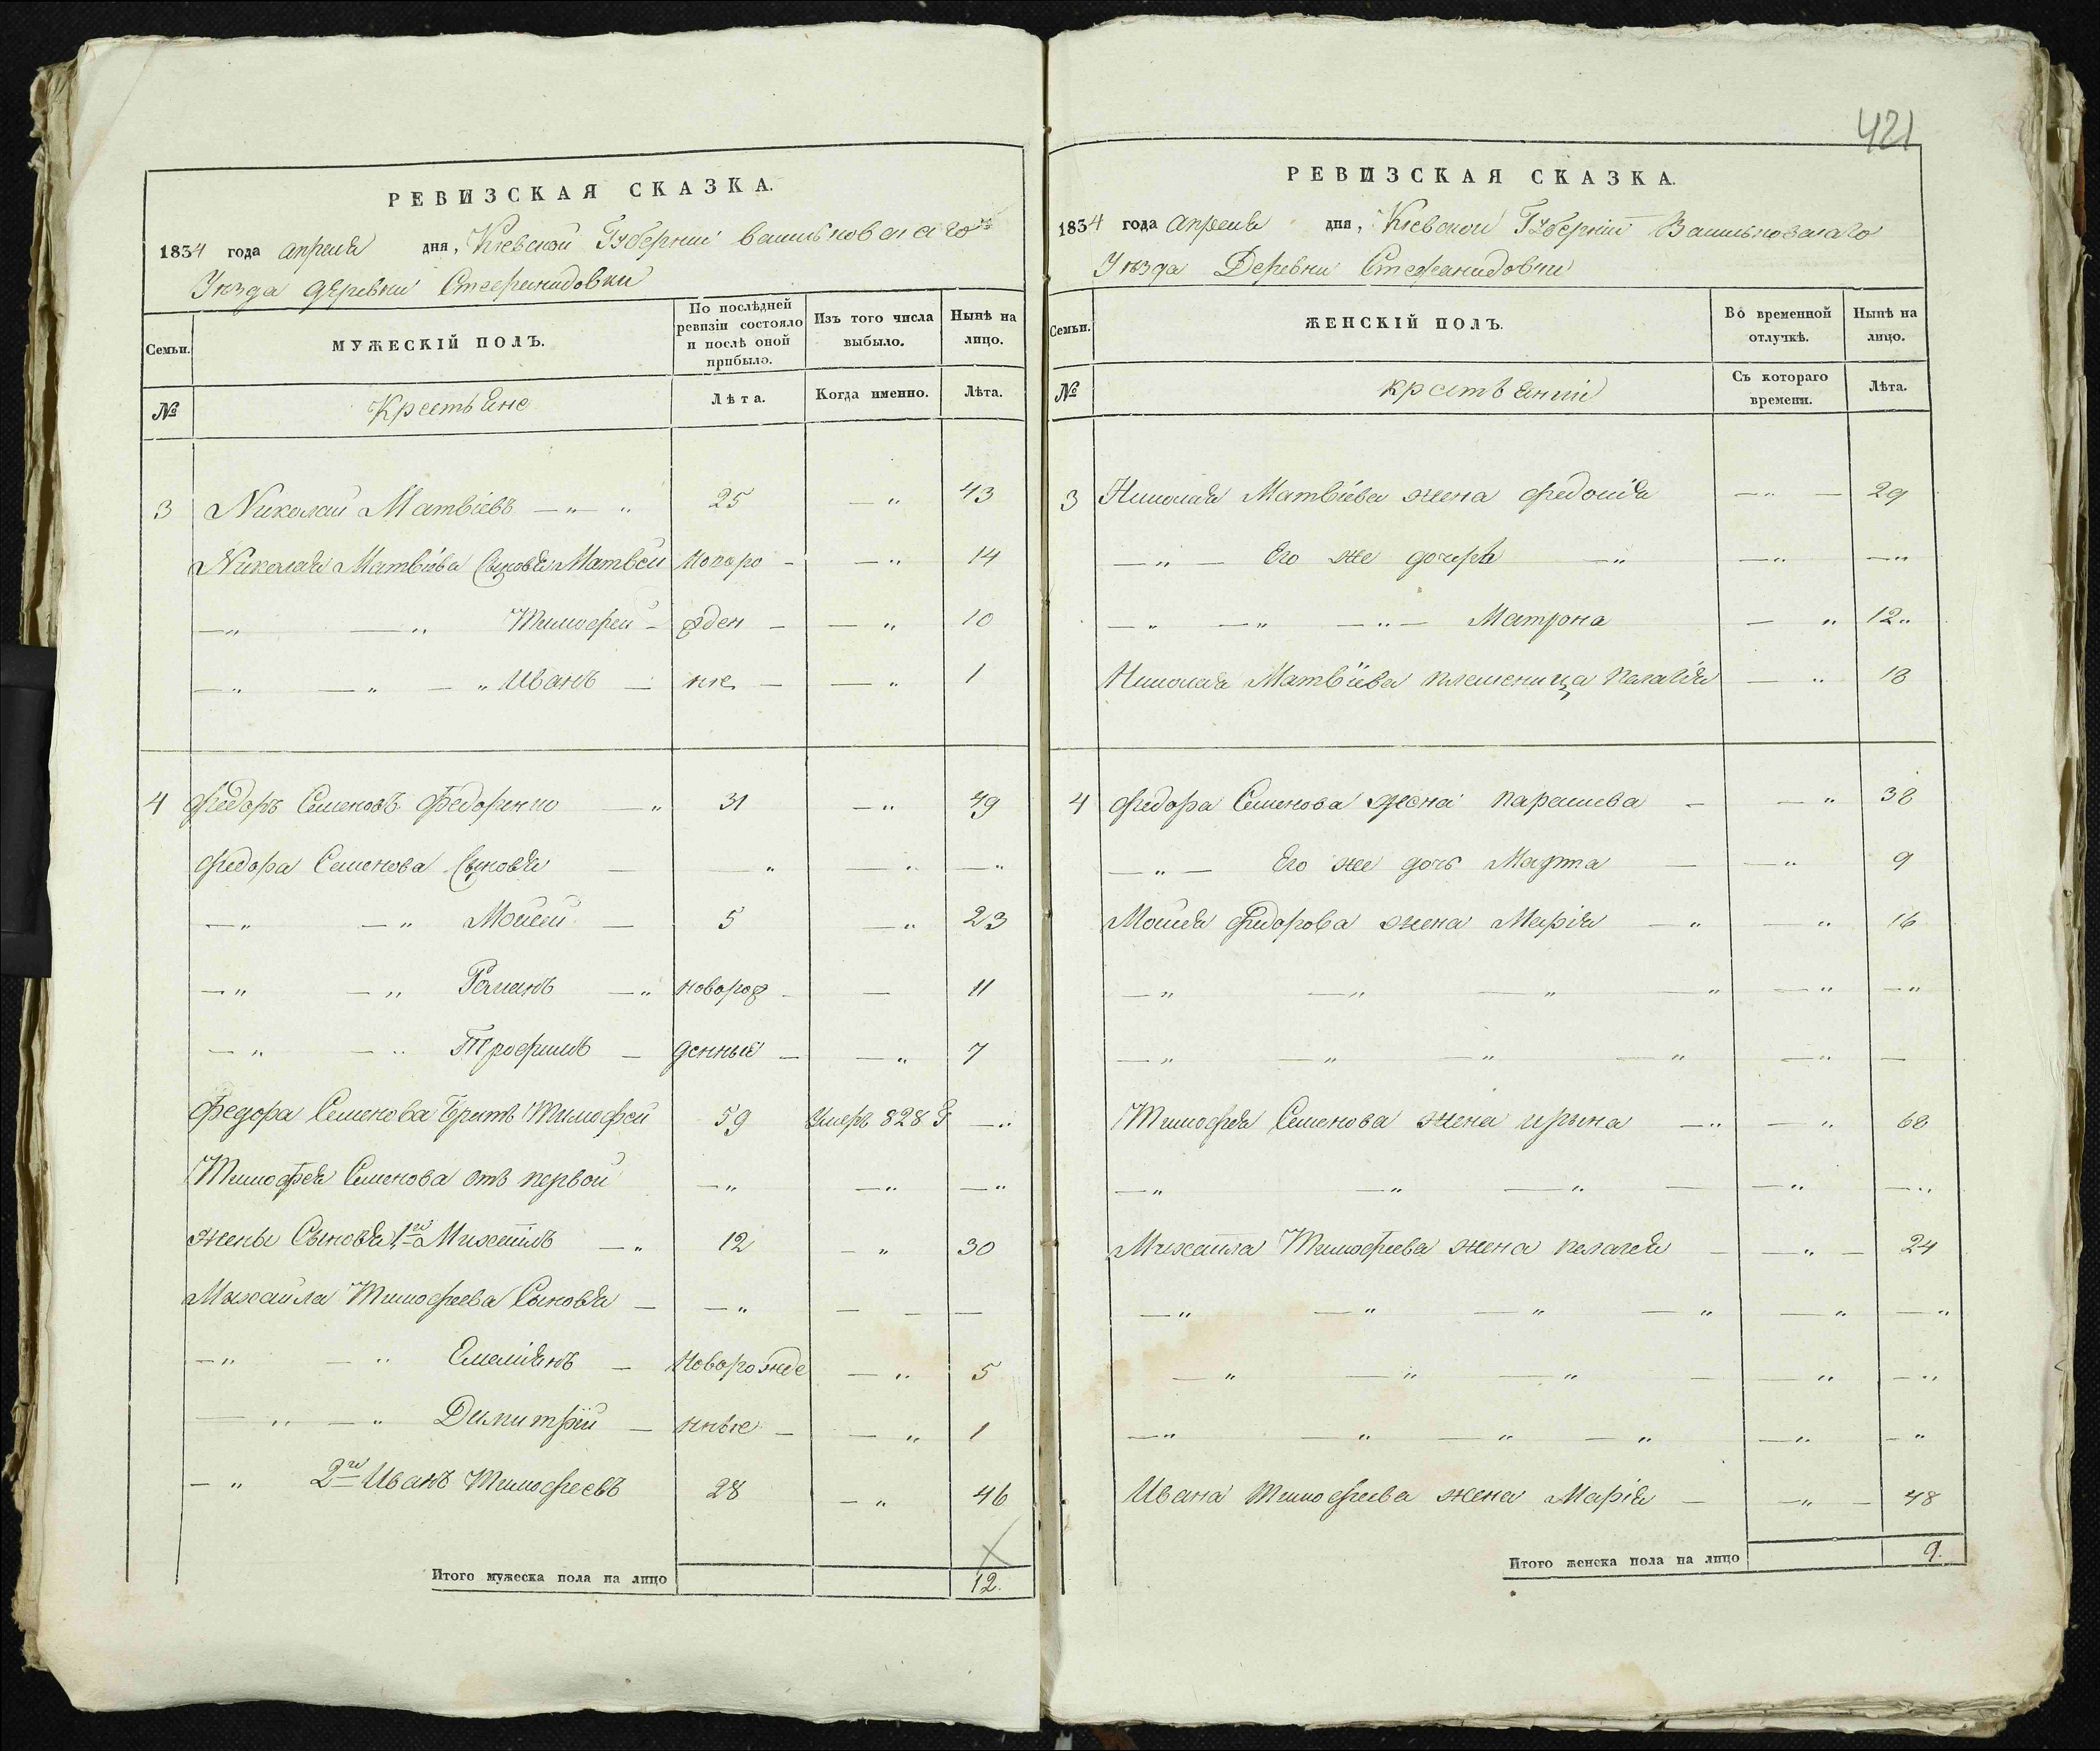 РЕВИЗСКАЯ СКАЗКА.
1834 года апреля дня, Кіевской Губерніи Васильковскаго
Уѣзда деревни Стефанидовки
Семьи. МУЖЕСКІЙ ПОЛЪ. По послѣдней ревизіи состояло и послѣ оной прибыло. Изъ того числа выбыло. Нынѣ на лицо.
№ Крестьяне Лѣта. Когда именно. Лѣта.
3 Николай Матвіевъ — „ — „ 25 — „ 43
Николая Матвіева Сыновя Матвей Новоро — — „ 14
— „ — „ Тимофей — жден — — „ 10
— „ — „ — „ Иванъ — ніе — — „ 1
4 Федоръ Семеновъ Федоренко — „ 31 — „ 49
Федора Семенова Сыновя — — „ — „ — „
— „ — „ Мойсей — 5 — „ 23
— „ — „ Романъ — „ новорож — — 11
— „ — „ Трофимъ — денные — — „ 7
Федора Семенова Братъ Тимофей 59 Умеръ 828 г — „
Тимофея Семенова отъ первой — „ — „ — „
жены Сыновя 1й Михаилъ — „ 12 — „ 30
Михаила Тимофеева Сыновя — — „ — — —
— „ — „ Емеліянъ — Новорожде — „ 5
— „ — „ Димитрій — нные — — „ 1
— „ 2й Иванъ Тимофеевъ 28 — „ 46
Итого мужеска пола на лицо 12.
421
РЕВИЗСКАЯ СКАЗКА.
1834 года апреля дня, Кіевской Губерніи Васильковскаго
Уѣзда Деревни Стефанидовки
Семьи. ЖЕНСКІЙ ПОЛЪ. Во временной отлучкѣ. Нынѣ на лицо.
№ Съ котораго времени. Лѣта.
3 Николая Матвіева жена Федосія — „ — 29
— „ — Его же дочеря — „ — „ — „
— „ — „ — „ — Матрона — „ 12 „
Николая Матвіева племеница Палагія — „ 18
4 Федора Семенова жена Параскева — — „ 38
— „ — Его же дочь Марта — — „ 9
Мойсея Федорова жена Марія — „ — „ 16
— „ — „ — „ — „ — „ — „
— „ — „ — „ — „ — „ —
Тимофея Семенова жена Ирына — „ — „ 68
— „ — „ — „ — — „ — „
Михаила Тимофеева жена Пелагея — „ — 24
— „ — „ — „ — „ — „ — „
— „ — „ — „ — — „ — „
— „ — „ — „ — „ — „ — „
Ивана Тимофеева жена Марія — — „ — 48
Итого женска пола на лицо 9.